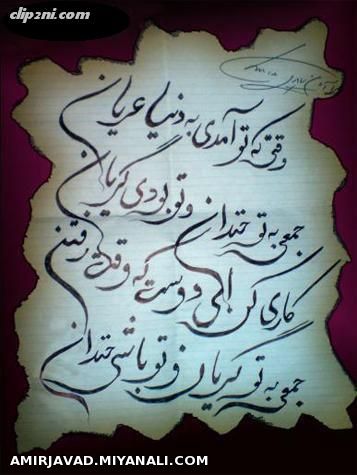 clip2ni.com
وقتی که تو آمدی به دنیا عریان
جمعی به تو خندان و تو بودی گریان
کاری کن ای دوست که وقت رفتن
جمعی به تو گریان و تو باشی خندان
AMIRJAVAD.MIYANALI.COM